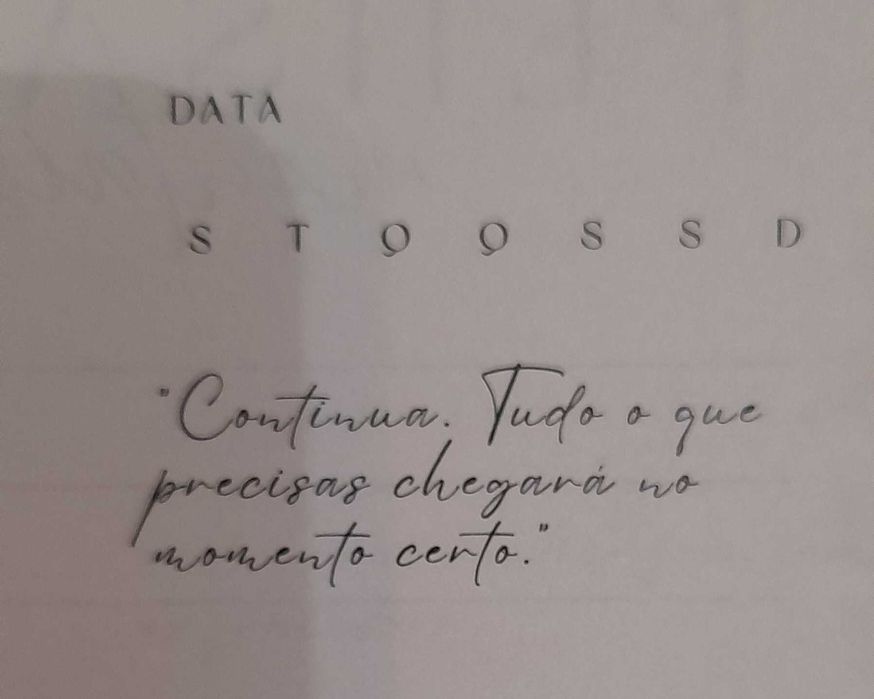 DATA
S T Q Q S S D
"Continua. Tudo o que
precisas chegará no
momento certo."